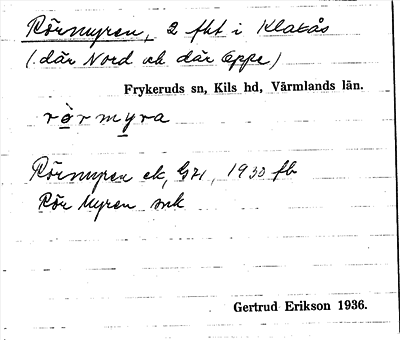 Rörmyren, 2 fkt i Klakås
(där Nord ok där Oppe)
Frykeruds sn, Kils hd, Värmlands län.
rörmyra
Rörmyren ek, 1930 fb
Rör Myren snk
Gertrud Erikson 1936.